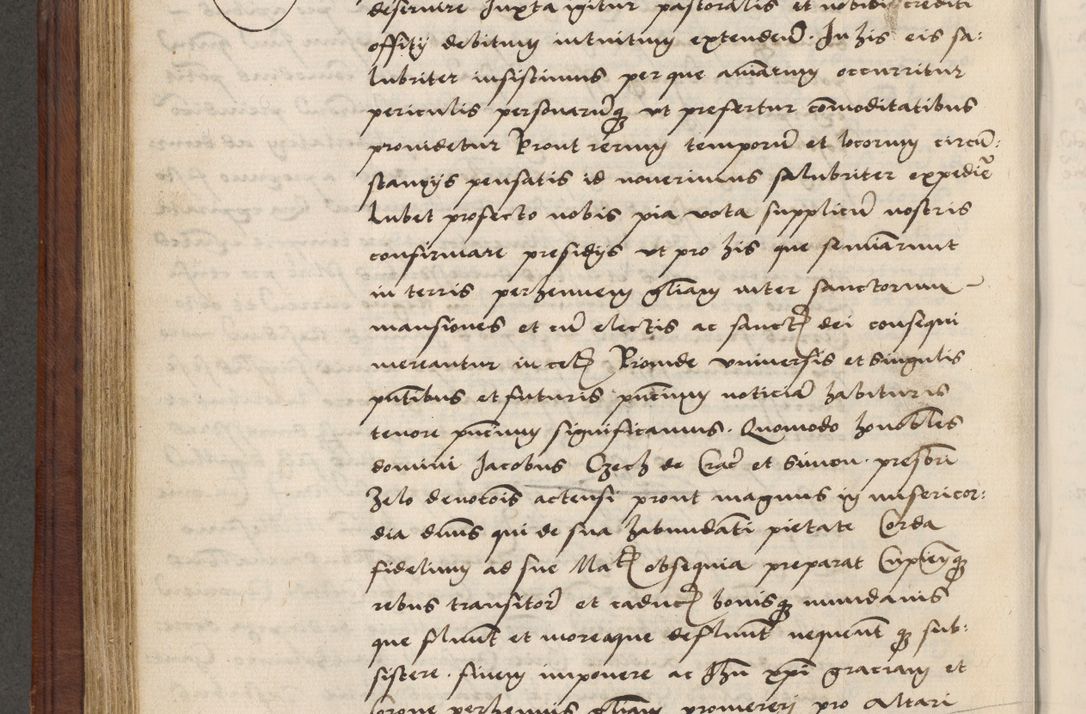 deseruire Juxta igitur pastoralis et nobis crediti
offitij debitum intuitum extendend. In his eis sa:
lubriter insistimus per que animarum occurritur
periculis personarumq ut prefertur comoditatibus
prouidetur Prout rerum temporu et locorum circu:
stantijs pensatis id nouerimus salubriter expedire
lubet profecto nobis pia vota supplicu nostris
confirmare presidijs ut pro his que seminarunt
in terris perhennem gliam inter sanctorum
mansiones et cu electis ac sanct dei consequi
mereantur in cel Proinde vniuersis et singulis
pntibus et futuris pncium noticia habituris
tenore pncium significamus. Quomodo honobles
domini Jacobus Czech de Crac et Simon presbri
Zelo deuotois actensi prout magnus in misericor:
dia dnus qui de sua habundanti pietate Corda
fidelium ad sue Mat obsequia preparat Cupientq
rebus transitor et caduc bonisq mundanis
que fluunt et moreaque defluunt nequeunt q sub:
sistere. finem imponere ac Jhu xpi graciam et
perhennis gliam promereri pro Altari